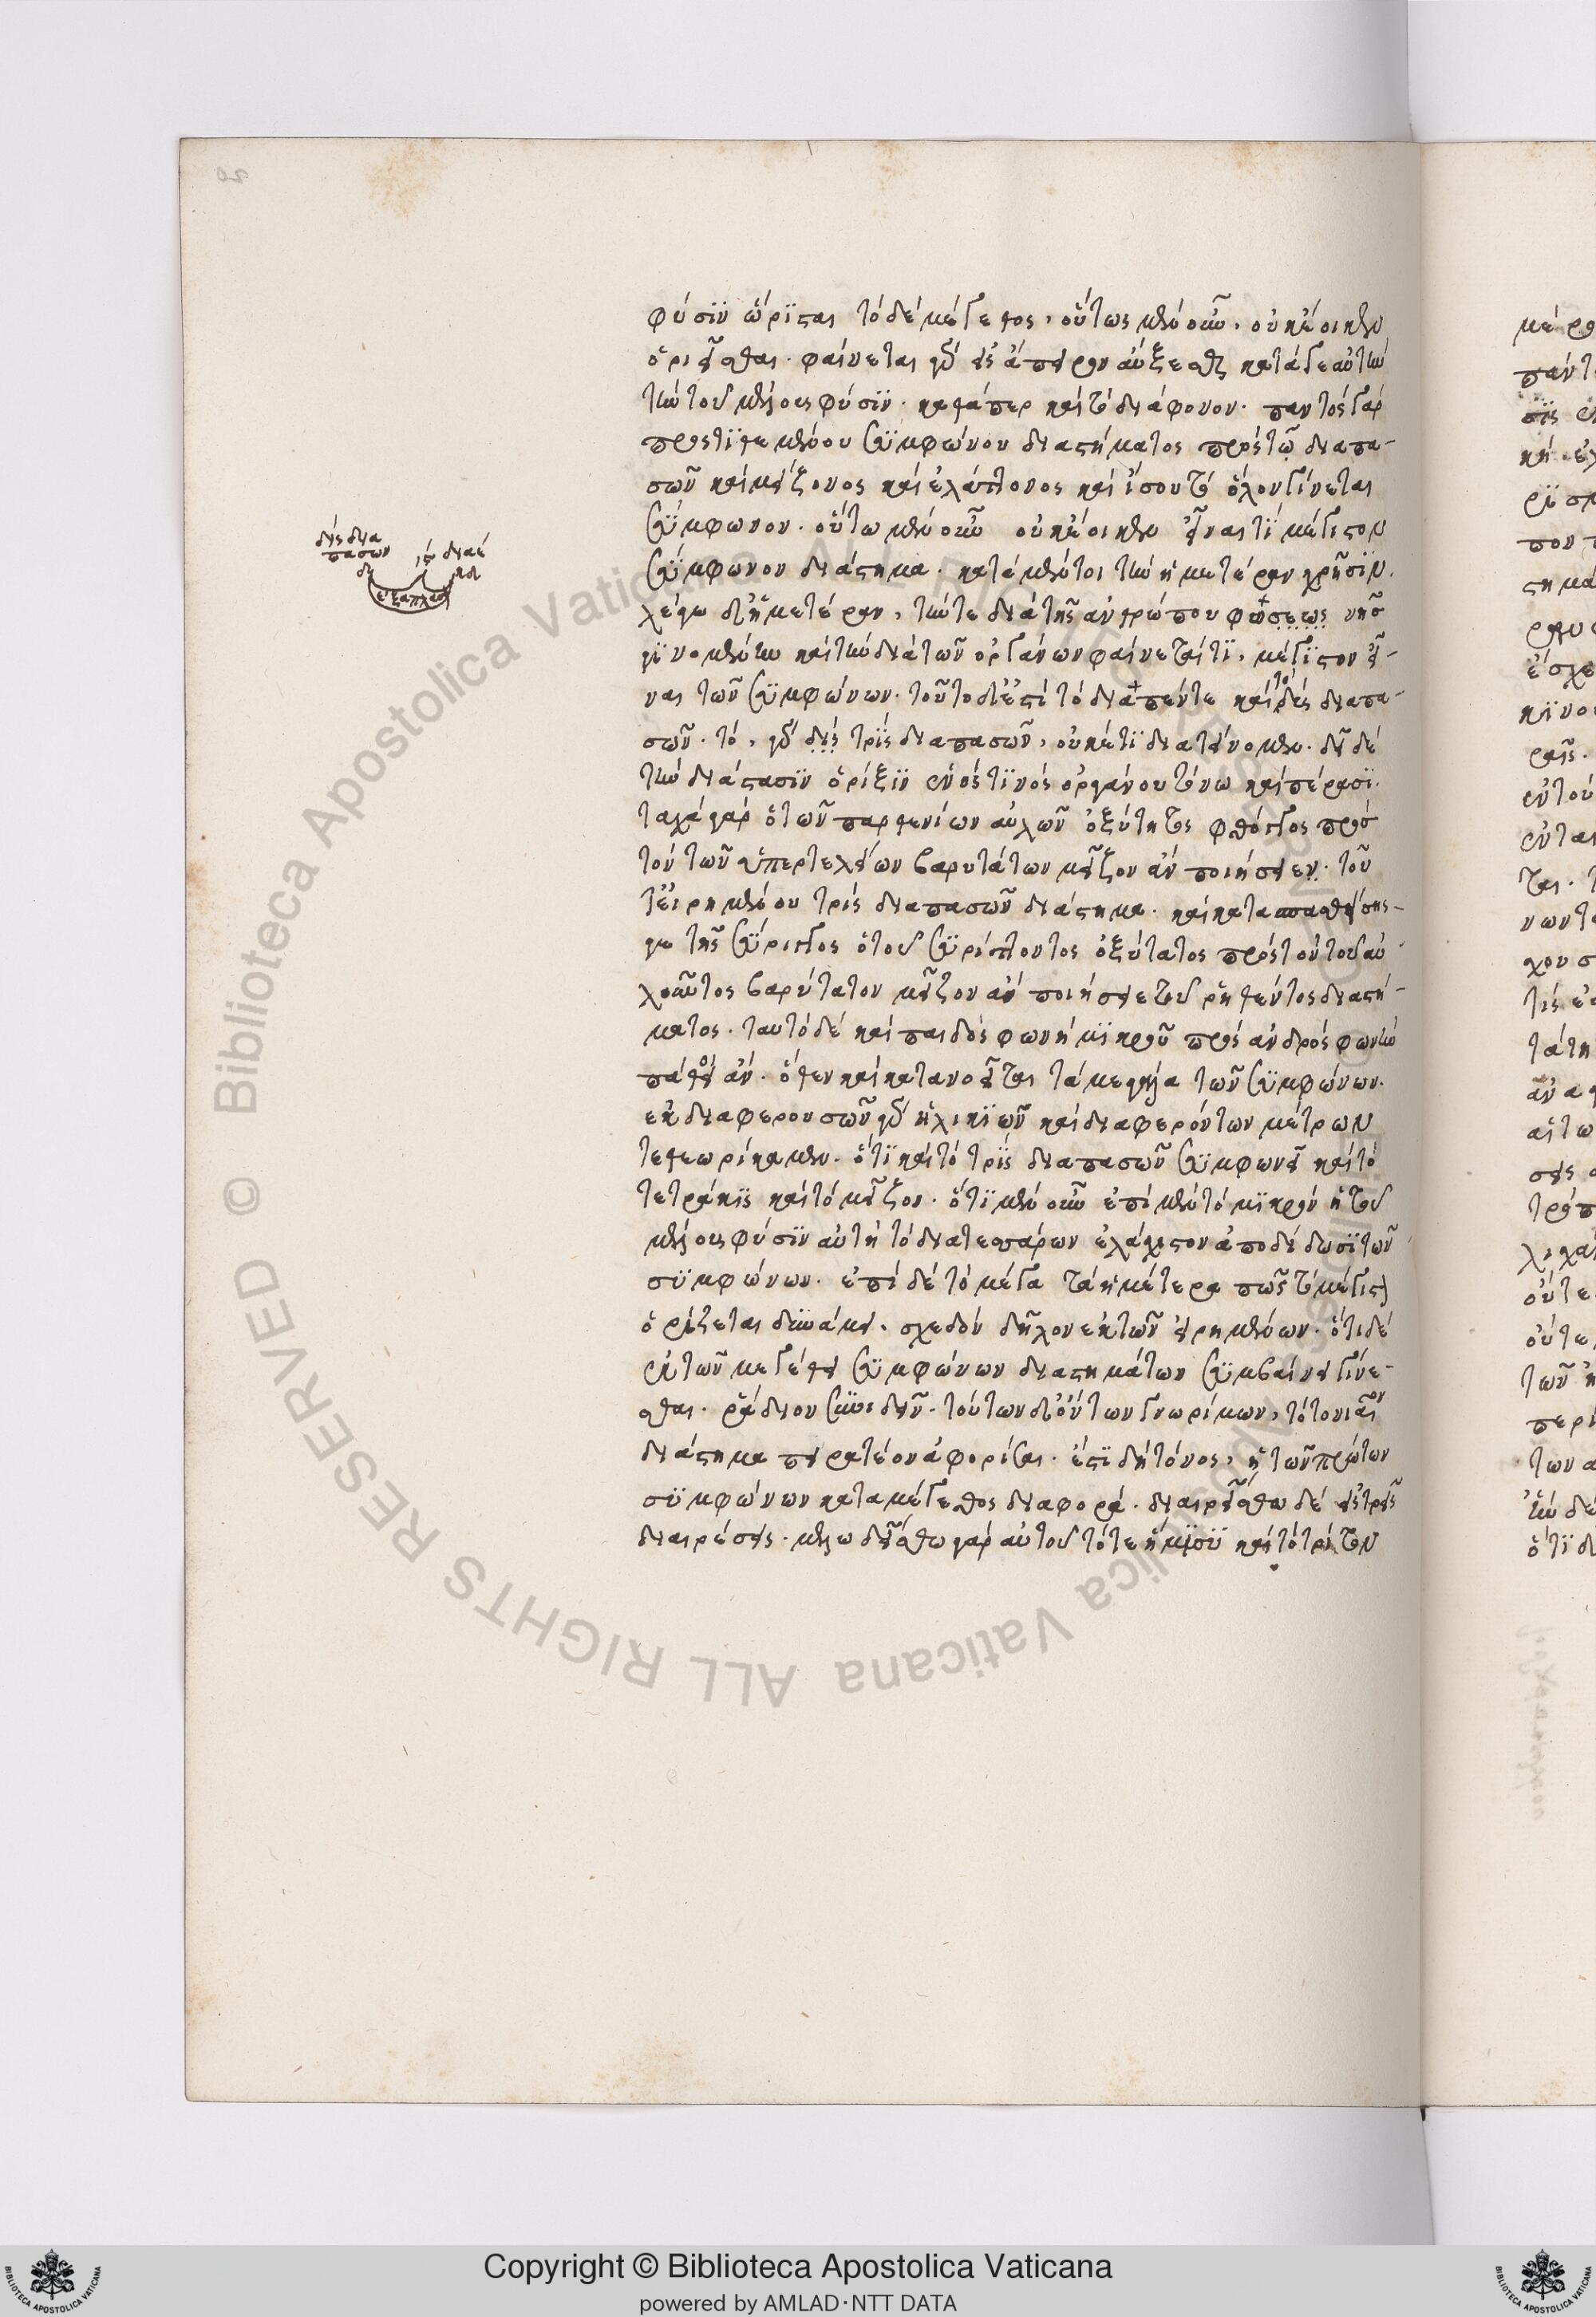 φύσϊν ὥρϊσται τὸ δὲ μέγεθος, οὕτως μὲν οὖν, οὐκ ἔοικεν
ὁρίζεσθαι. φαίνεται γὰρ εἰς ἄπειρον αὔξεσθαι κατά γε αὐτὴν
τὴν τοῦ μέλους φύσϊν. καθάπερ καὶ τὸ διάφονον. παντὸς γὰρ
προστϊθεμένου συμφώνου διαστήματος πρὸς τῷ διαπα-
σῶν καὶ μείζονος καὶ ἐλάττονος καὶ ἴσου τὸ ὅλον γίνεται
σύμφωνον. οὕτω μὲν οὖν οὐκ ἔοικεν εἶναι τϊ μέγιστον
σύμφωνον διάστημα. κατὰ μέντοι τὴν ἡμετέραν χρῆσϊν.
λέγω δ' ἡμετέραν, τήν τε διὰ τῆς ἀνθρώπου φώσεως
γϊνομένην καὶ τὴν διὰ τῶν ὀργάνων φαίνεταί τϊ, μέγϊστον εἶ-
ναι τῶν συμφώνων. τοῦτο δ' ἐστὶ τὸ διὰ πέντε καὶ τὸ δὶς διαπα-
σῶν. τὸ, γὰρ δὶς τρῒς διαπασῶν, οὐκέτϊ διατείνομεν. δεῖ δὲ
τὴν διάστασϊν ὁρίζϊν ἑνός τϊνὸς ὀργάνου τόνω καὶ πέρασϊ.
ταχα γὰρ ὁ τῶν παρθενίων αὐλῶν ὀξύτητος φθόγγος πρὸς
τὸν τῶν ὑπερτελείων βαρυτάτων μεῖζον ἂν ποιήσειεν. τοῦ
τε εἰρημένου τρὶς διαπασῶν διάστημα. καὶ κατασπασθείσης
γε τῆς σύριγγος ὁ τοῦ συρίττοντος ὀξύτατος πρὸς τὸν τοῦ αὐ-
λοῦντος βαρύτατον μεῖζον ἂν ποιήσειε τοῦ ῥηθέντος διαστή-
ματος. ταυτὸ δὲ καὶ παιδὸς φωνὴ μϊκροῦ πρὸς ἀνδρὸς φωνὴν
πάθοι ἄν. ὅθεν καὶ κατανοεῖται τὰ μεγάλα τῶν συμφώνων.
ἐκ διαφερουσῶν γὰρ ἡλικϊῶν καὶ διαφερόντων μέτρων
τεθεωρήκαμεν. ὅτϊ καὶ τὸ τρῒς διαπασῶν συμφωνεῖ καὶ τὸ
τετράκϊς καὶ τὸ μεῖζον. ὅτϊ μὲν οὖν ἐπὶ μὲν τὸ μϊκρὸν ἡ τοῦ
μέλους φύσϊν αὐτὴ τὸ διατεσσάρων ἐλάχιστον ἀποδίδωσϊ τῶν
συμφώνων. ἐπὶ δὲ τὸ μέγα τῇ ἡμέτερα πως τὸ μέγιστον
ὁρίζεται δυνάμει. σχεδὸν δῆλον ἐκ τῶν εἰρημένων. ὅτι δὲ
ὀκτὼ μεγέθη συμφώνων διαστημάτων συμβαίνει γίνε-
σθαι. ῥᾴδιον συνιδεῖν. τούτων δ' ὄντων γνωρίμων, τὸ τονιαῖον
διάστημα πειρατέον ἀφορίσαι. ἔστϊ δὴ τόνος, ἡ τῶν πρώτων
συμφώνων κατα μέγεθος διαφορά. διαιρείσθω δὲ εἰς τρεῖς
διαιρέσεις. μελωδείσθω γὰρ αὐτοῦ τό τε ἥμϊσϋ καὶ τὸ τρίτον
δὶς δια
πασων
ἑξαπλασι